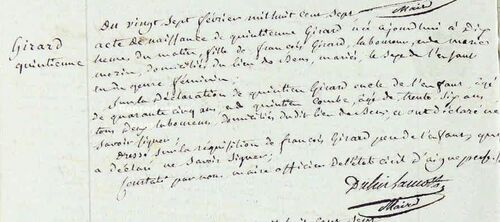 Maire
Du vingt Sept février mil huit cent Sept,
Girard quintienne
acte de naissance de quintienne Girard née ajourdhui à Dix
heures du matin, fille de françois Girard, laboureur, et de marie
morin, domiciliés du lieu de Bens, mariés, le Sexe de l'enfant
du genre féminin;
Sur la Déclaration de quintien Girard oncle de l'enfant, âgé
de quarante cinq ans, et de quintien Combe, âgé de trente Six ans,
tous Deux laboureurs, domiciliés du dit lieu de Bens, et ont déclaré ne
Savoir Signer;
Dressé Sur la réquisition de françois Girard pere de l'enfant, qui
a déclaré ne Savoir Signer;
Constaté par nous, maire officier De l'état civil d'aigueperse,
Maire